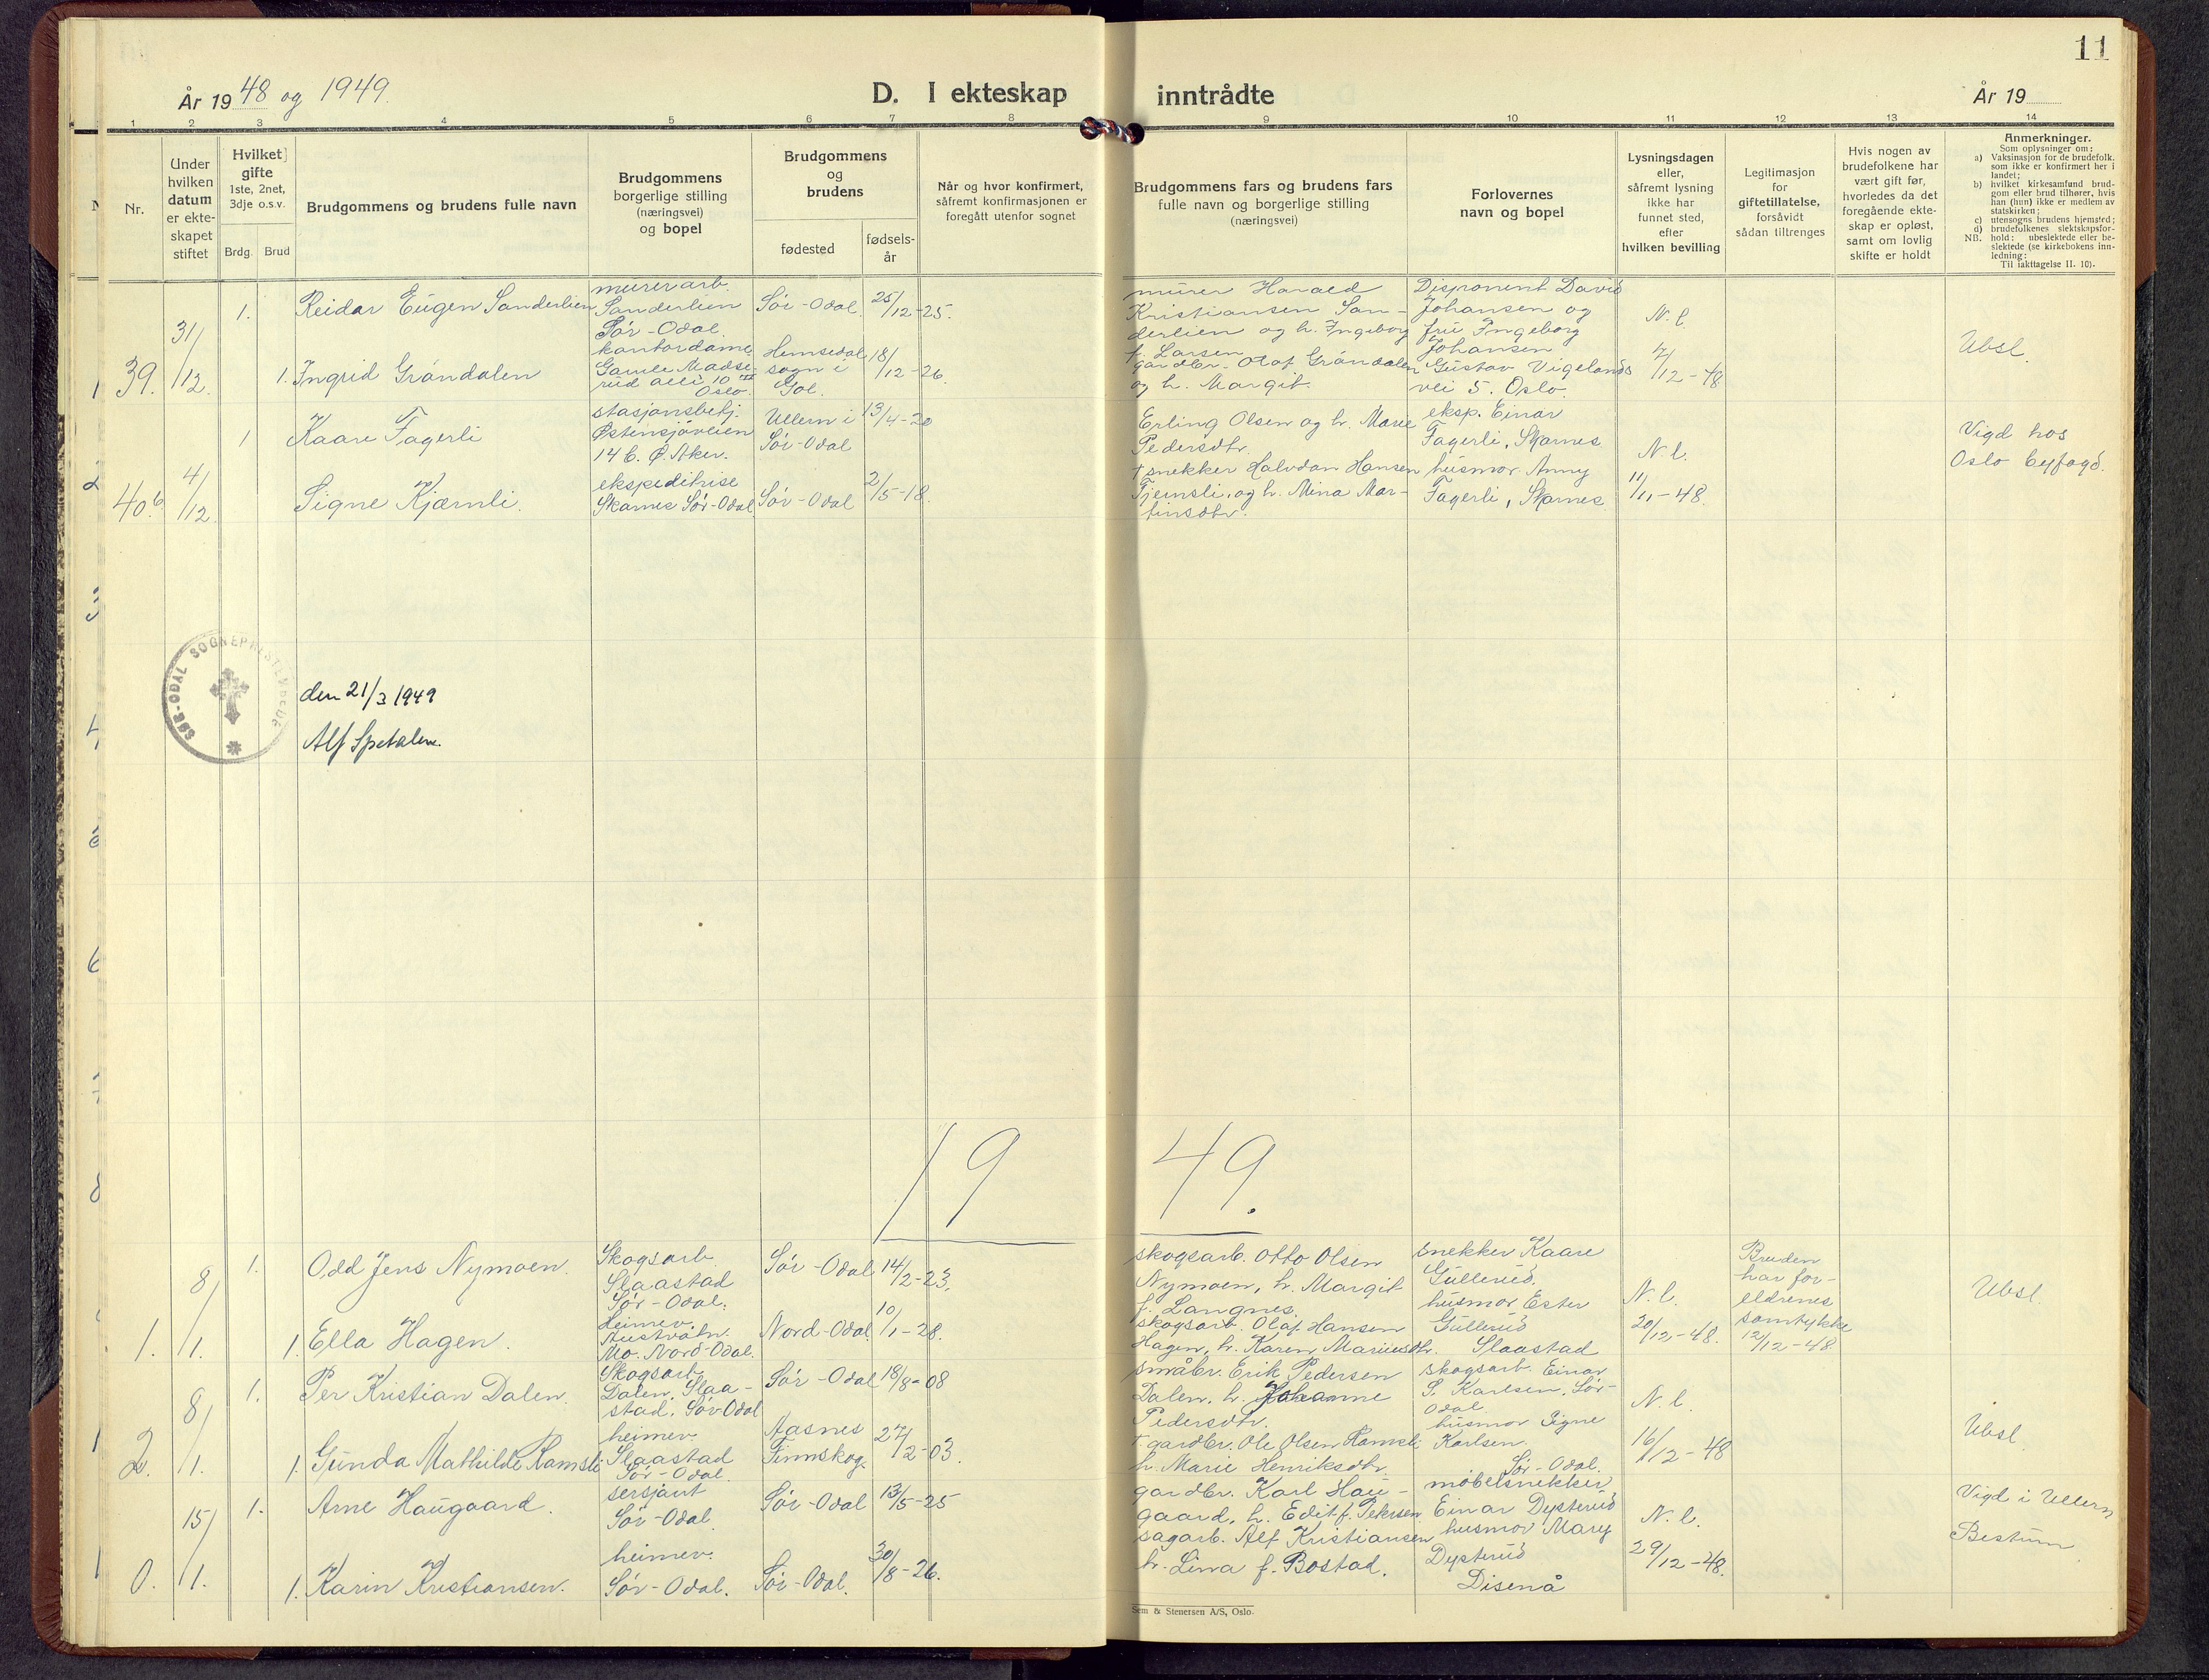 11
År 1948 og 1949.
D. I ekteskap inntrådte
År 19
1 2 3 4 5 6 7 8 9 10 11 12 13 14
Nr.
Under
hvilken
datum
er ekte-
skapet
stiftet
Hvilket
gifte
1ste, 2net,
3dje o.s.v.
Brdg. Brud
Brudgommens og brudens fulle navn
Brudgommens
borgerlige stilling
(næringsvei)
og bopel
Brudgommens
og
brudens
fødested
fødsels-
år
Når og hvor konfirmert,
såfremt konfirmasjonen er
foregått utenfor sognet
Brudgommens fars og brudens fars
fulle navn og borgerlige stilling
(næringsvei)
Forlovernes
navn og bopel
Lysningsdagen
eller,
såfremt lysning
ikke har
funnet sted,
efter
hvilken bevilling
Legitimasjon
for
giftetillatelse,
forsåvidt
sådan tiltrenges
Hvis nogen av
brudefolkene har
vært gift før,
hvorledes da det
foregående ekte-
skap er opløst,
samt om lovlig
skifte er holdt
Anmerkninger.
Som oplysninger om:
a) Vaksinasjon for de brudefolk,
som ikke er konfirmert her i
landet;
b) hvilket kirkesamfund brud-
gom eller brud tilhører, hvis
han (hun) ikke er medlem av
statskirken;
c) utensogns brudens hjemsted;
d) brudefolkenes slektskapsfor-
hold: ubeslektede eller be-
slektede (se kirkebokens inn-
ledning:
NB. Til iakttagelse II. 10).
39.
31/12.
1.
Reidar Eugen Sanderlien
murerarb.
Sanderlien
Sør-Odal.
Sør-Odal.
25/12-25.
murer Harald
Kristiansen San-
derlien og h. Ingeborg
f. Larsen
Disponent David
Johansen og
fru Ingeborg
Johansen
Gustav Vigelands
vei 5. Oslo.
N.l.
7/12-48
Ubsl.
1. Ingrid Gröndalen
kontordame
Gamle Madse-
rud allé 10
Oslo.
Hemsedal
sogn i
Gol.
18/12-26.
gardbr. Olaf Gröndalen
og h. Margit.
40.
4/12
1
Kaare Fagerli
stasjonsbetj.
Østensjöveien
14 b. Ø. Aker.
Ullern i
Sør-Odal
13/4-20
Erling Olsen og h. Marie
Pedersdtr.
eksp. Einar
Fagerli, Skarnes
husmor Anny
Fagerli, Skarnes
N.l.
11/11-48.
Vigd hos
Oslo byfogd.
Signe Kjærnli.
ekspeditrise
Skarnes Sør-Odal
Sør-Odal
2/5-18.
† snekker Halvdan Hansen
Tjernsli, og h. Mina Mar-
tinsdtr.
SØR-ODAL SOGNEPRESTEMBEDE
den 21/3 1949
Alf Spetalen.
1949.
1.
8/1.
1.
Odd Jens Nymoen.
Skogsarb.
Slaastad
Sør-Odal.
Sør-Odal
14/2-23.
skogsarb. Otto Olsen
Nymoen, h. Margit
f. Langnes.
snekker Kaare
Gullerud.
husmor Ester
Gullerud
Slaastad
N.l.
20/12-48.
Bruden
har for-
eldrenes
samtykke
12/12-48
Ubsl.
1. Ella Hagen.
Heimev.
Austvatn.
Mo. Nord-Odal.
Nord-Odal
10/1-28.
skogsarb. Olaf Hansen
Hagen, h. Karen Mariusdtr.
2.
8/1.
1.
Per Kristian Dalen.
Skogsarb.
Dalen, Slaa-
stad, Sør-Odal
Sør-Odal
18/8-08
småbr. Erik Pedersen
Dalen, h. Johanne
Pedersdtr.
skogsarb. Einar
S. Karlsen, Sør-
Odal.
husmor Signe
Karlsen.
Sør-Odal.
N.l.
16/12-48
Ubsl.
1. Gunda Mathilde Ramsli
heimev.
Slaastad
Sør-Odal.
Aasnes
Finnskog.
27/2-03.
† gardbr. Ole Olsen Ramsli
h. Marie Henriksdtr.
0.
15/1.
1.
Arne Haugaard.
sersjant
Sør-Odal.
Sør-Odal
13/5-25
gardbr. Karl Hau-
gaard, h. Edit f. Petersen
møbelsnekker
Einar Dysterud
husmor Mary
Dysterud
Disenå
N.l.
29/12-48.
Vigd i Ullern
Bestum.
1. Karin Kristiansen.
heimev.
Sør-Odal.
Sør-Odal.
30/8-26.
sagarb. Alf Kristiansen
h. Lina f. Bostad.
Sem & Stenersen A/S, Oslo.